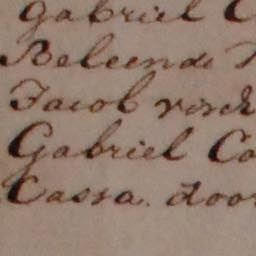 Gabriel C
Beleende
Jacob
Gabriel Co
Cassa. door